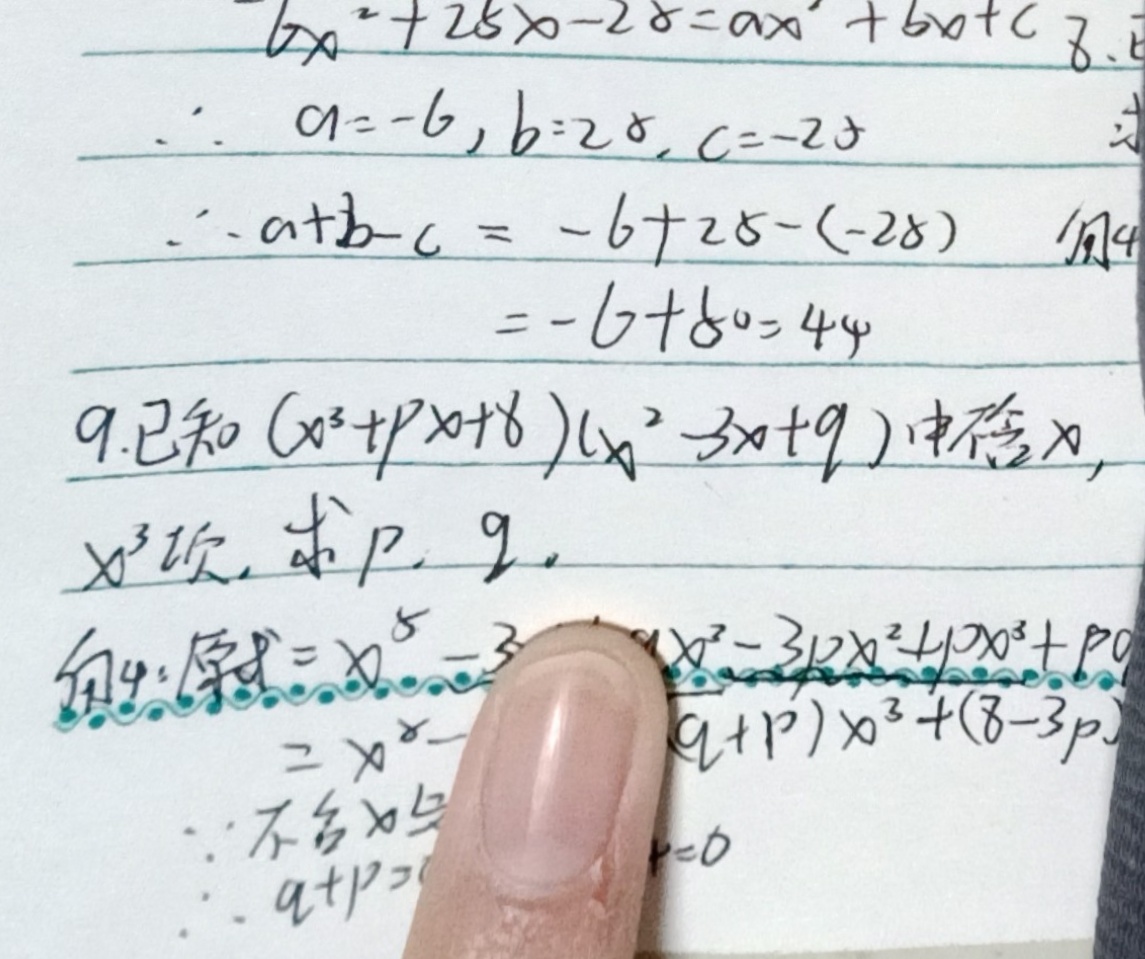 6x²+25x-28=ax²+bx+c 8.
∴ a=-6, b=25, c=-25
∴ a+b-c = -6+25-(-25)
=-6+50=44
9.已知(x³+px+8)(x²-3x+q)中不含x,
x³项.求p.q.
解:原式=x⁵-3 qx³-3px²+px³+pq
=x⁵- (q+p)x³+(8-3p)
∵不含x与
∴q+p= =0